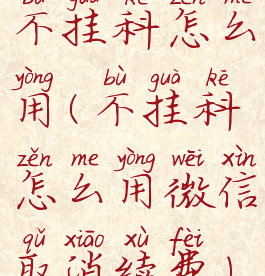 bù guà kē zěn me
不挂科怎么
yòng bù guà kē
用(不挂科
zěn me yòng wēi xìn
怎么用微信
qǔ xiāo xù fèi
取消续费)